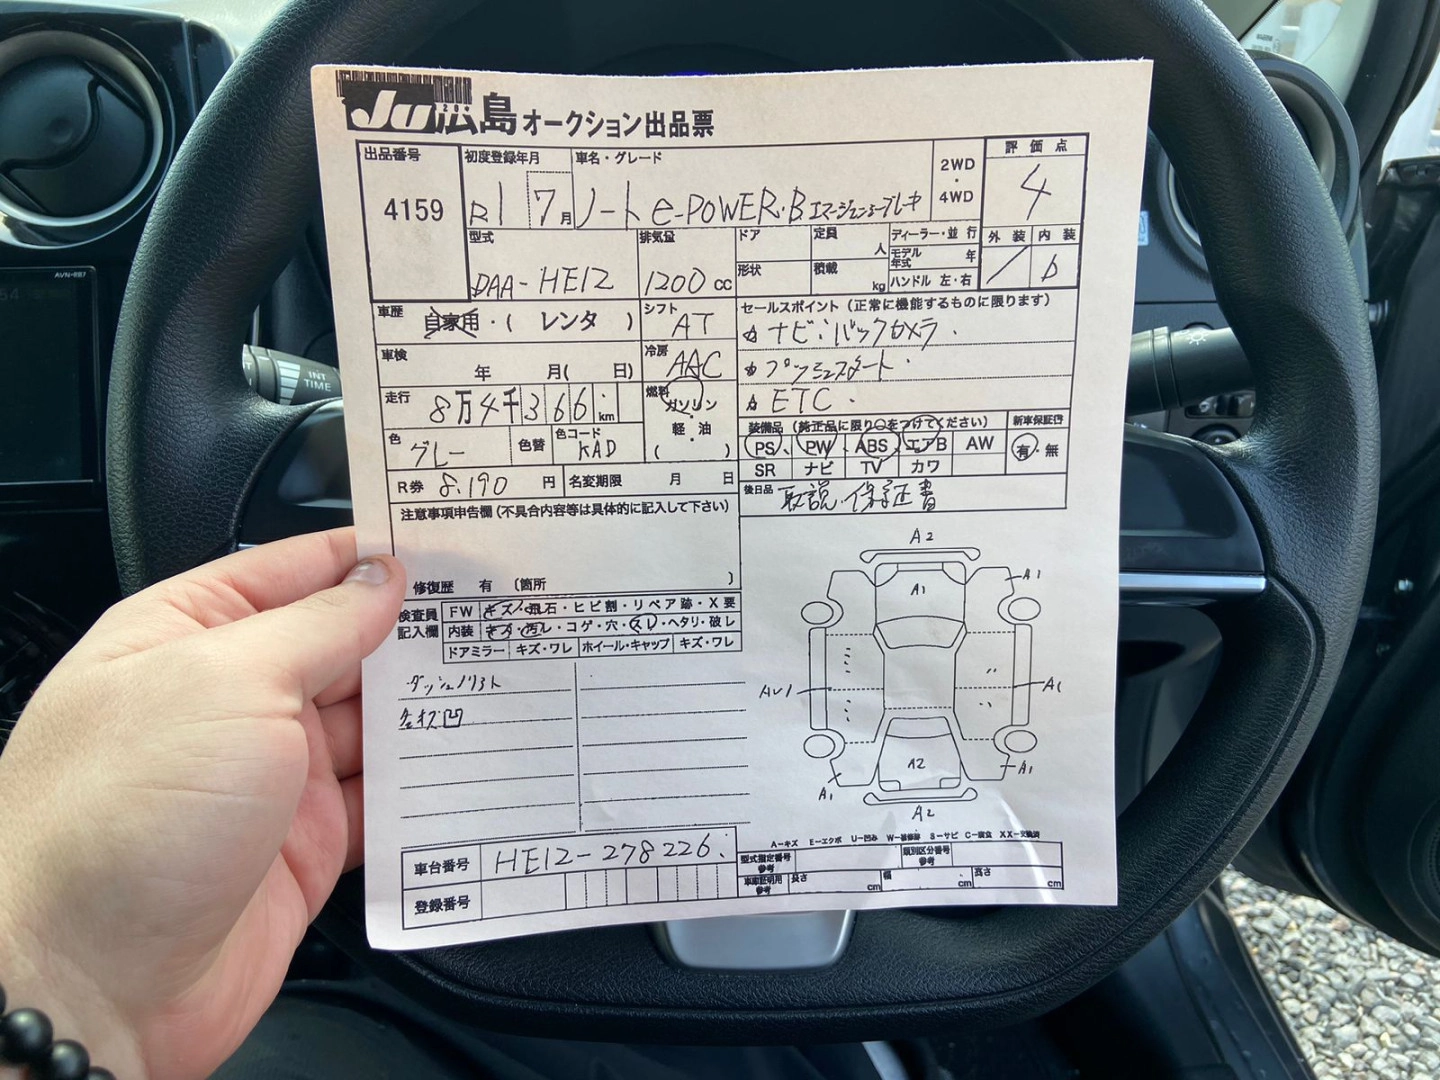 Ju広島オークション出品票
出品番号
4159
初度登録年月
R1 7月
車名・グレード
ノート e-POWER・B エマージェンシーブレーキ
2WD・4WD
評価点
4
型式
DAA-HE12
排気量
1200cc
ドア
定員 人
ディーラー・並行
モデル年式 年
形状
積載 kg
ハンドル 左・右
外装
内装
b
車歴 自家用・( レンタ )
シフト
AT
セールスポイント(正常に機能するものに限ります)
☆ナビ・バックカメラ・
☆プッシュスタート・
☆ETC・
車検 年 月( 日)
冷房
AAC
走行 8万4千366km
燃料
ガソリン
軽・油
( )
色 グレー
色替
色コード
KAD
装備品(純正品に限り○をつけてください)
PS PW ABS エアB AW
SR ナビ TV カワ
新車保証書
有・無
R券 8,190円
名変期限 月 日
後日品 取説・保証書
注意事項申告欄(不具合内容等は具体的に記入して下さい)
修復歴 有 〔箇所 〕
検査員記入欄
FW キズ・飛石・ヒビ割・リペア跡・X要
内装 キズ・汚レ・コゲ・穴・スレ・ヘタリ・破レ
ドアミラー キズ・ワレ ホイール・キャップ キズ・ワレ
ダッシュノリ
凹
A2
A1
A1
AU1
A1
A2
A1
A1
A2
A-キズ E-エクボ U-凹み W-補修跡 S-サビ C-腐食 XX-交換済
車台番号 HE12-278226
登録番号
型式指定番号 参考
類別区分番号 参考
車庫証明用 参考
長さ cm
幅 cm
高さ cm
AVN-R87
INT
TIME